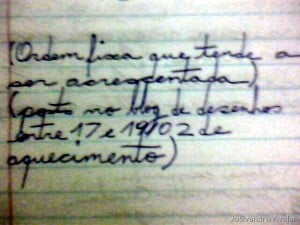 (Ordem fixa que tende a
ser acrescentada)
(posto no blog de desenhos
entre 17 e 19/02 de
aquecimento)